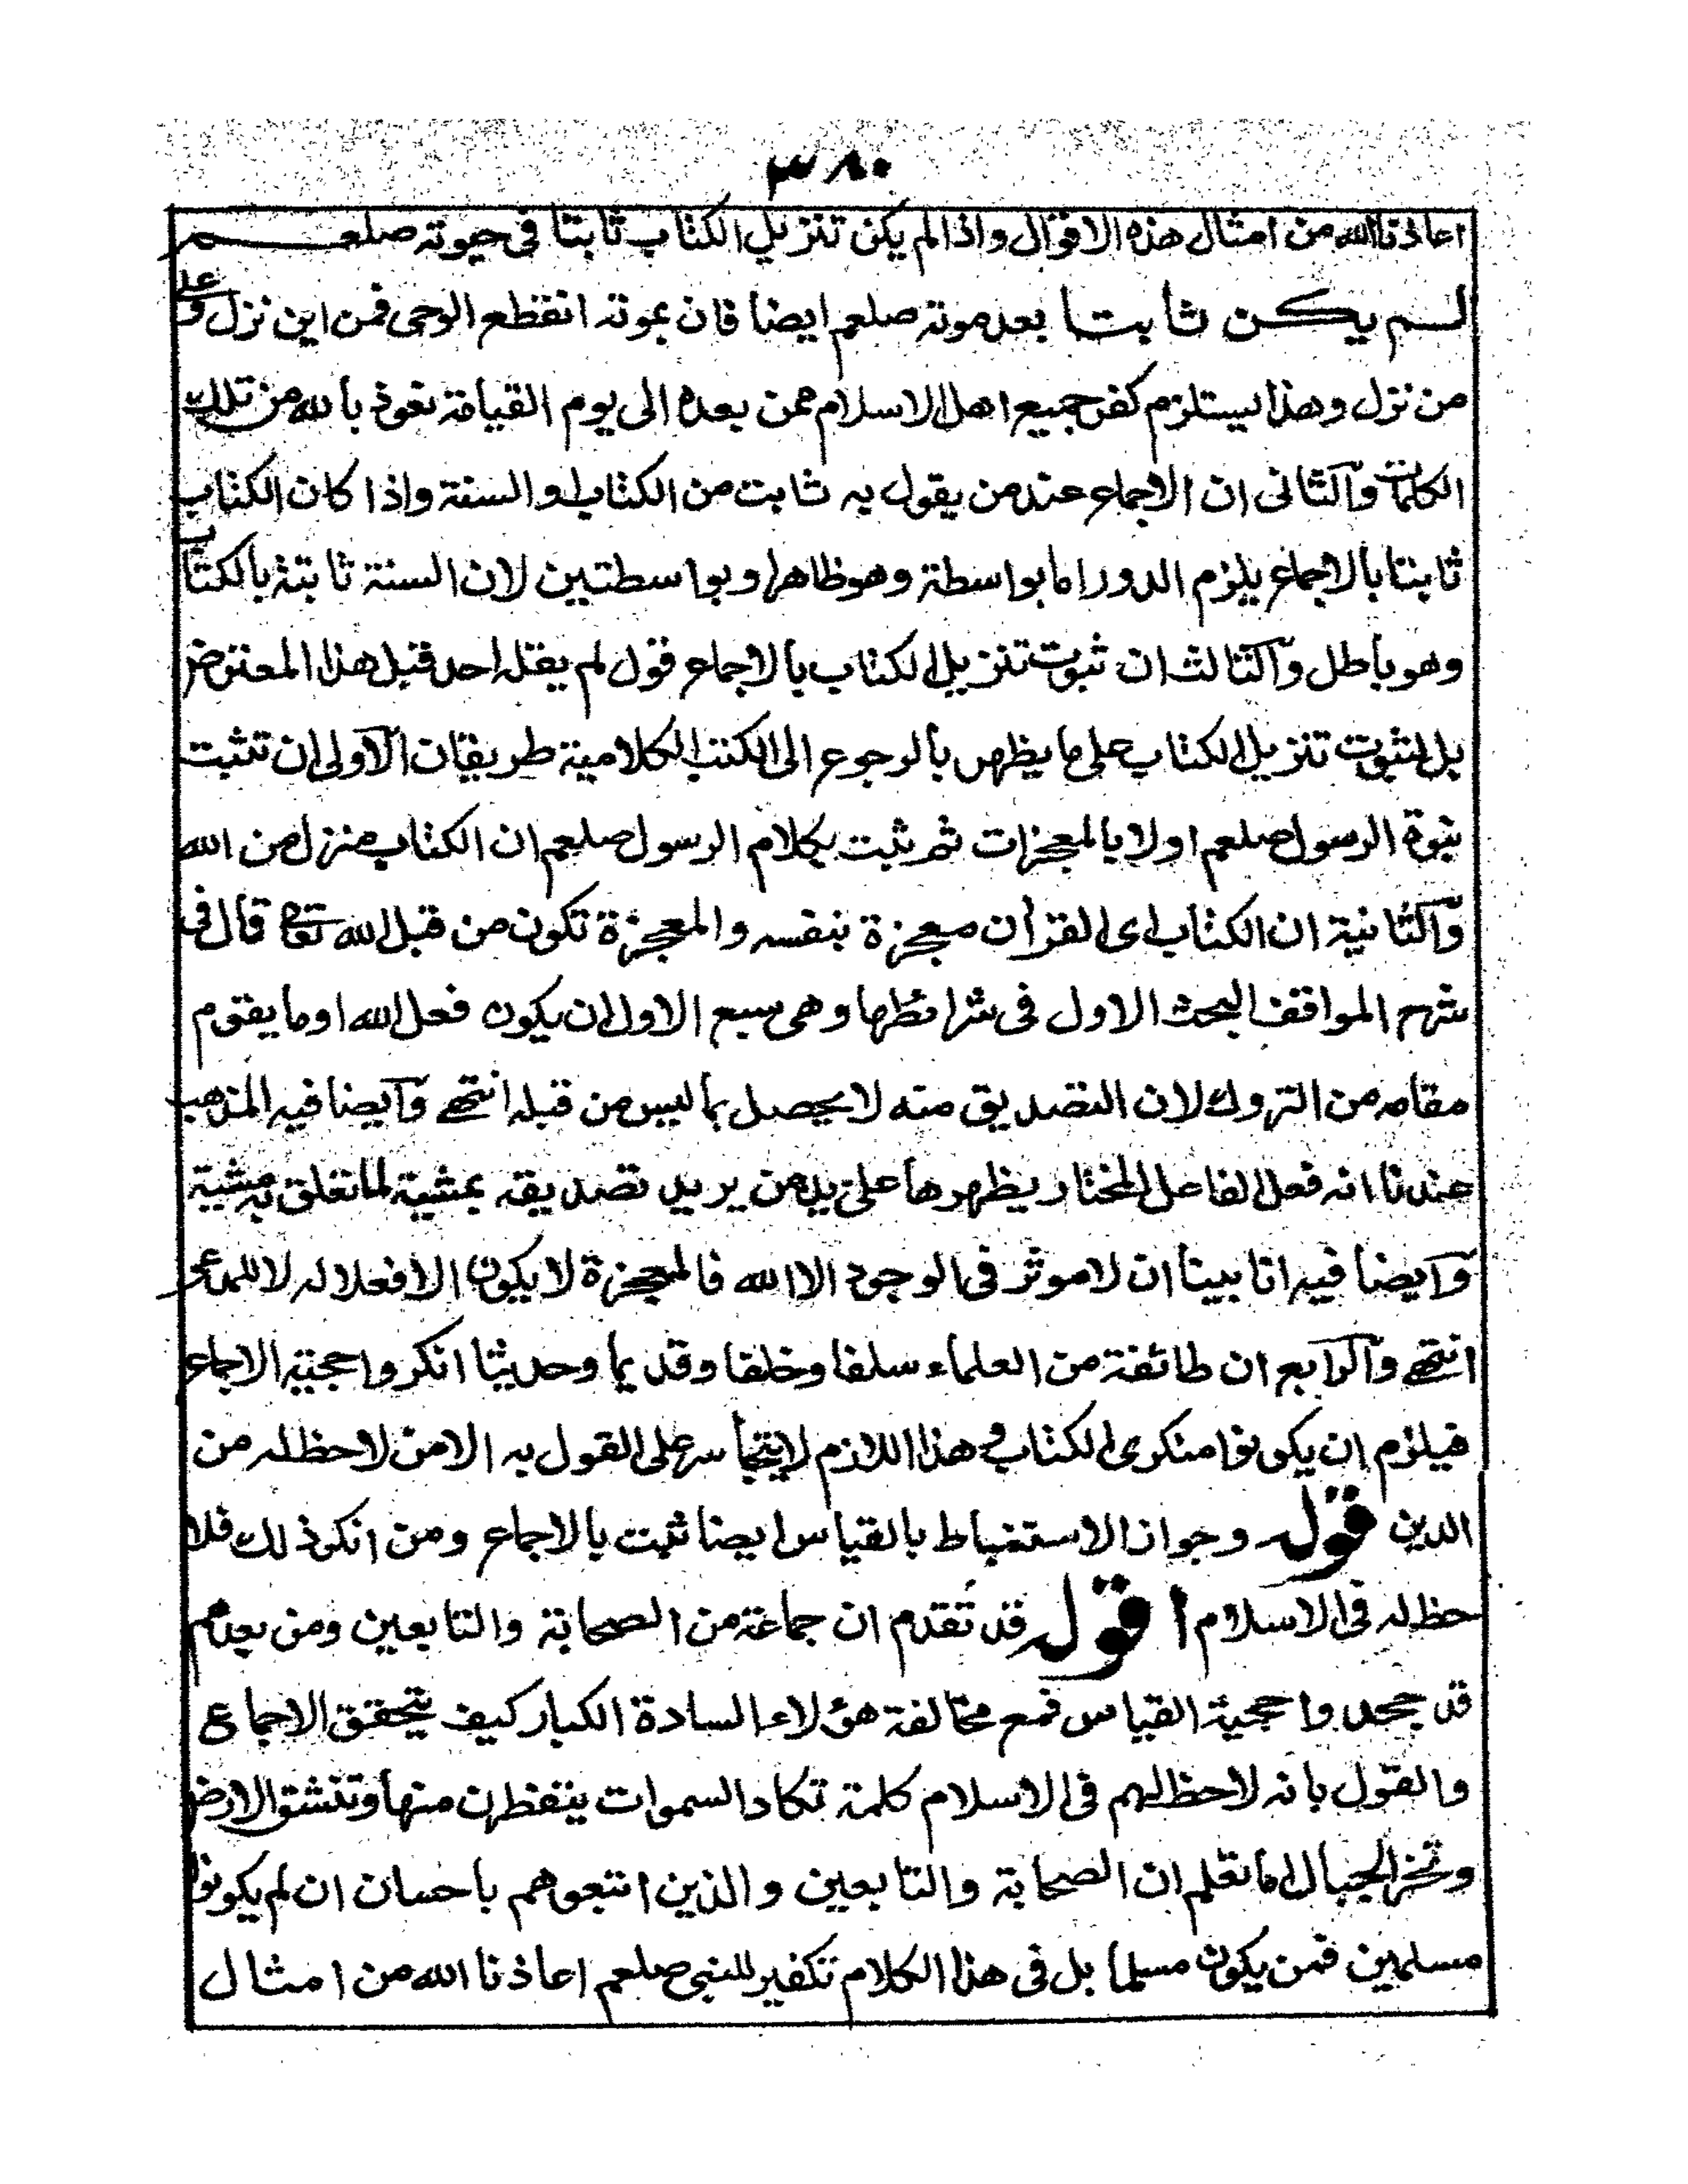 ٣٨٠
اعاذنا الله من امثال هذه الاقوال واذا لم يكن تنزيل الكتاب ثابتا فى حيوته صلعم
لم يكن ثابتا بعد موته صلعم ايضا فان بموته انقطع الوحى فمن اين نزل وعلى
من نزل وهذا يستلزم كفر جميع اهل الاسلام ممن بعده الى يوم القيامة نعوذ بالله من تلك
الكلمات والثانى ان الاجماع عند من يقول به ثابت من الكتاب او السنة واذا كان الكتاب
ثابتا بالاجماع يلزم الدور اما بواسطة وهو ظاهر او بواسطتين لان السنة ثابتة بالكتاب
وهو باطل والثالث ان ثبوت تنزيل الكتاب بالاجماع قول لم يقله احد قبل هذا المعترض
بل لثبوت تنزيل الكتاب على ما يظهر بالرجوع الى الكتب الكلامية طريقان الاولى ان تثبت
نبوة الرسول صلعم اولا بالمعجزات ثم ثبت بكلام الرسول صلعم ان الكتاب منزل من الله
والثانية ان الكتاب اى القرأن معجزة بنفسه والمعجزة تكون من قبل الله تعالى قال فى
شرح المواقف البحث الاول فى شرائطها وهى سبع الاول ان يكون فعل الله او ما يقوم
مقامه من التروك لان التصديق منه لا يحصل بما ليس من قبله انتهى وايضا فيه المذهب
عندنا انه فعل الفاعل المختار يظهرها على يد من يريد تصديقه بمشية لما تعلق به مشية
وايضا فيه انا بينا ان لا موثر فى الوجود الا الله فالمعجزة لا يكون الا فعلا له لا للمدعى
انتهى والرابع ان طائفة من العلماء سلفا وخلفا وقديما وحديثا انكروا حجية الاجماع
فيلزم ان يكونوا منكرى الكتاب وهذا اللازم لا يتجاسر على القول به الا من لا حظ له من
الدين قوله وجواز الاستنباط بالقياس ايضا ثبت بالاجماع ومن انكر ذلك فلا
حظ له فى الاسلام اقول قد تقدم ان جماعة من الصحابة والتابعين ومن بعدهم
قد جحدوا حجية القياس فمع مخالفة هؤلاء السادة الكبار كيف يتحقق الاجماع
والقول بانه لا حظ لهم فى الاسلام كلمة تكاد السموات يتفطرن منها وتنشق الارض
وتخر الجبال اما تعلم ان الصحابة والتابعين والذين اتبعوهم باحسان ان لم يكونوا
مسلمين فمن يكون مسلما بل فى هذا الكلام تكفير للنبى صلعم اعاذنا الله من امثال